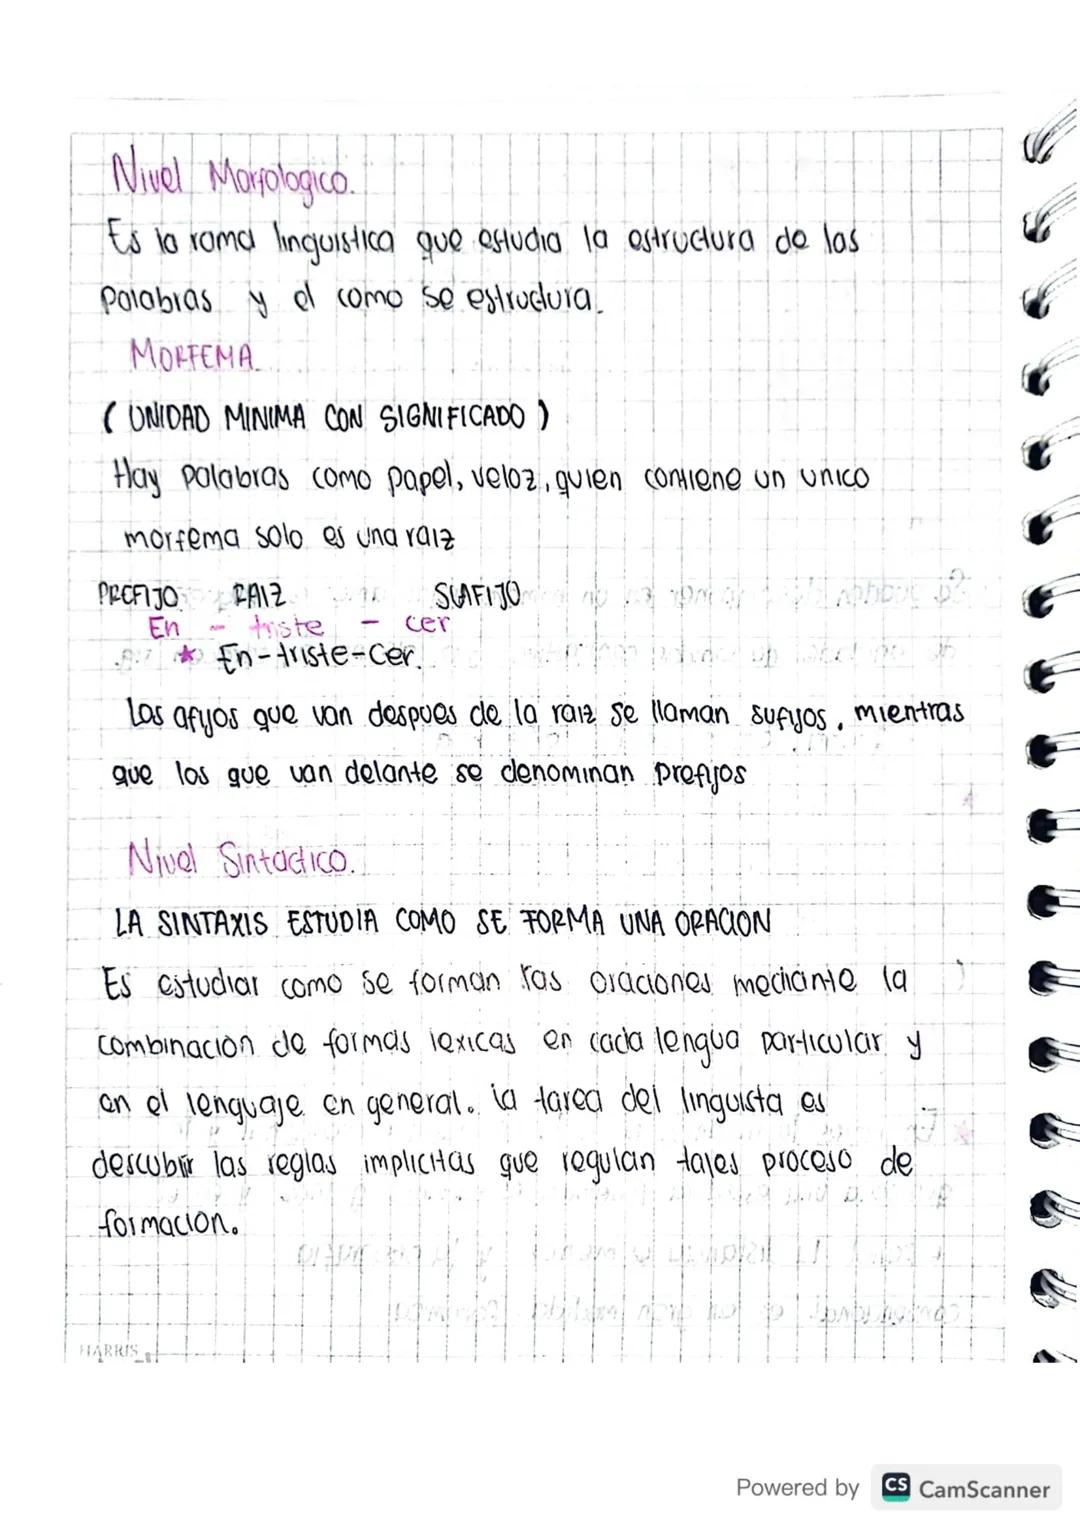 Nivel Morfologico.
Es la rama linguistica que estudia la estructura de las
Palabras y el como se estructura.
MORFEMA
( UNIDAD MINIMA CON SIGNIFICADO )
Hay palabras como papel, veloz, quien contiene un unico
morfema solo es una raiz
PREFIJO RAIZ SUFIJO
En - triste - cer
* En-triste-cer.
Los afijos que van despues de la raiz se llaman sufijos, mientras
que los que van delante se denominan prefijos
Nivel Sintactico.
LA SINTAXIS ESTUDIA COMO SE FORMA UNA ORACION
Es estudiar como se forman las oraciones mediante la
combinacion de formas lexicas en cada lengua particular y
en el lenguaje en general. la tarea del linguista es
descubrir las reglas implicitas que regulan tales proceso de
formacion.
HARRIS
Powered by CS CamScanner